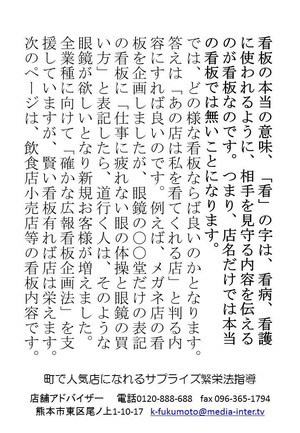 看板の本当の意味、「看」の字は、看病、看護
に使われるように、相手を見守る内容を伝える
のが看板なのです。つまり、店名だけでは本当
の看板では無いことになります。
では、どの様な看板ならば良いのかとなります。
答えは「あの店は私を看てくれる店」と判る内
容にすれば良いのです。例えば、メガネ店の看
板を企画しましたが、眼鏡の〇〇堂だけの表記
の看板に「仕事に疲れない眼の体操と眼鏡の買
い方」と表記したら、道行く人は、そのような
眼鏡が欲しいとなり新規お客様が増えました。
全業種に向けて「確かな広報看板企画法」を支
援していますが、賢い看板有れば店は栄えます。
次のページは、飲食店小売店等の看板内容です。
町で人気店になれるサプライズ繁栄法指導
店舗アドバイザー 電話0120-888-688 fax 096-365-1794
熊本市東区尾ノ上1-10-17 k-fukumoto@media-inter.tv